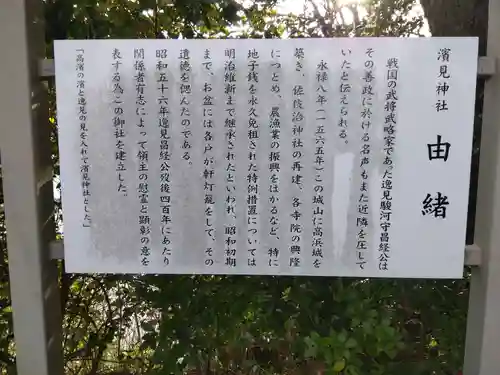 濱見神社 由緒
戦国の武将武略家であった逸見駿河守昌経公は
その善政に於ける名声もまた近隣を圧して
いたと伝えられる。
永禄八年(一五六五年)この城山に高浜城を
築き、佐伎治神社の再建、各寺院の興隆
につとめ、農漁業の振興をはかるなど、特に
地子銭を永久免租された特例措置については
明治維新まで継承されたといわれ、昭和初期
まで、お盆には各戸が軒灯籠をして、その
遺徳を偲んだのである。
昭和五十六年逸見昌経公没後四百年にあたり
関係者有志によって領主の慰霊と顕彰の意を
表する為この御社を建立した。
「高濱の濱と逸見の見を入れて濱見神社とした」